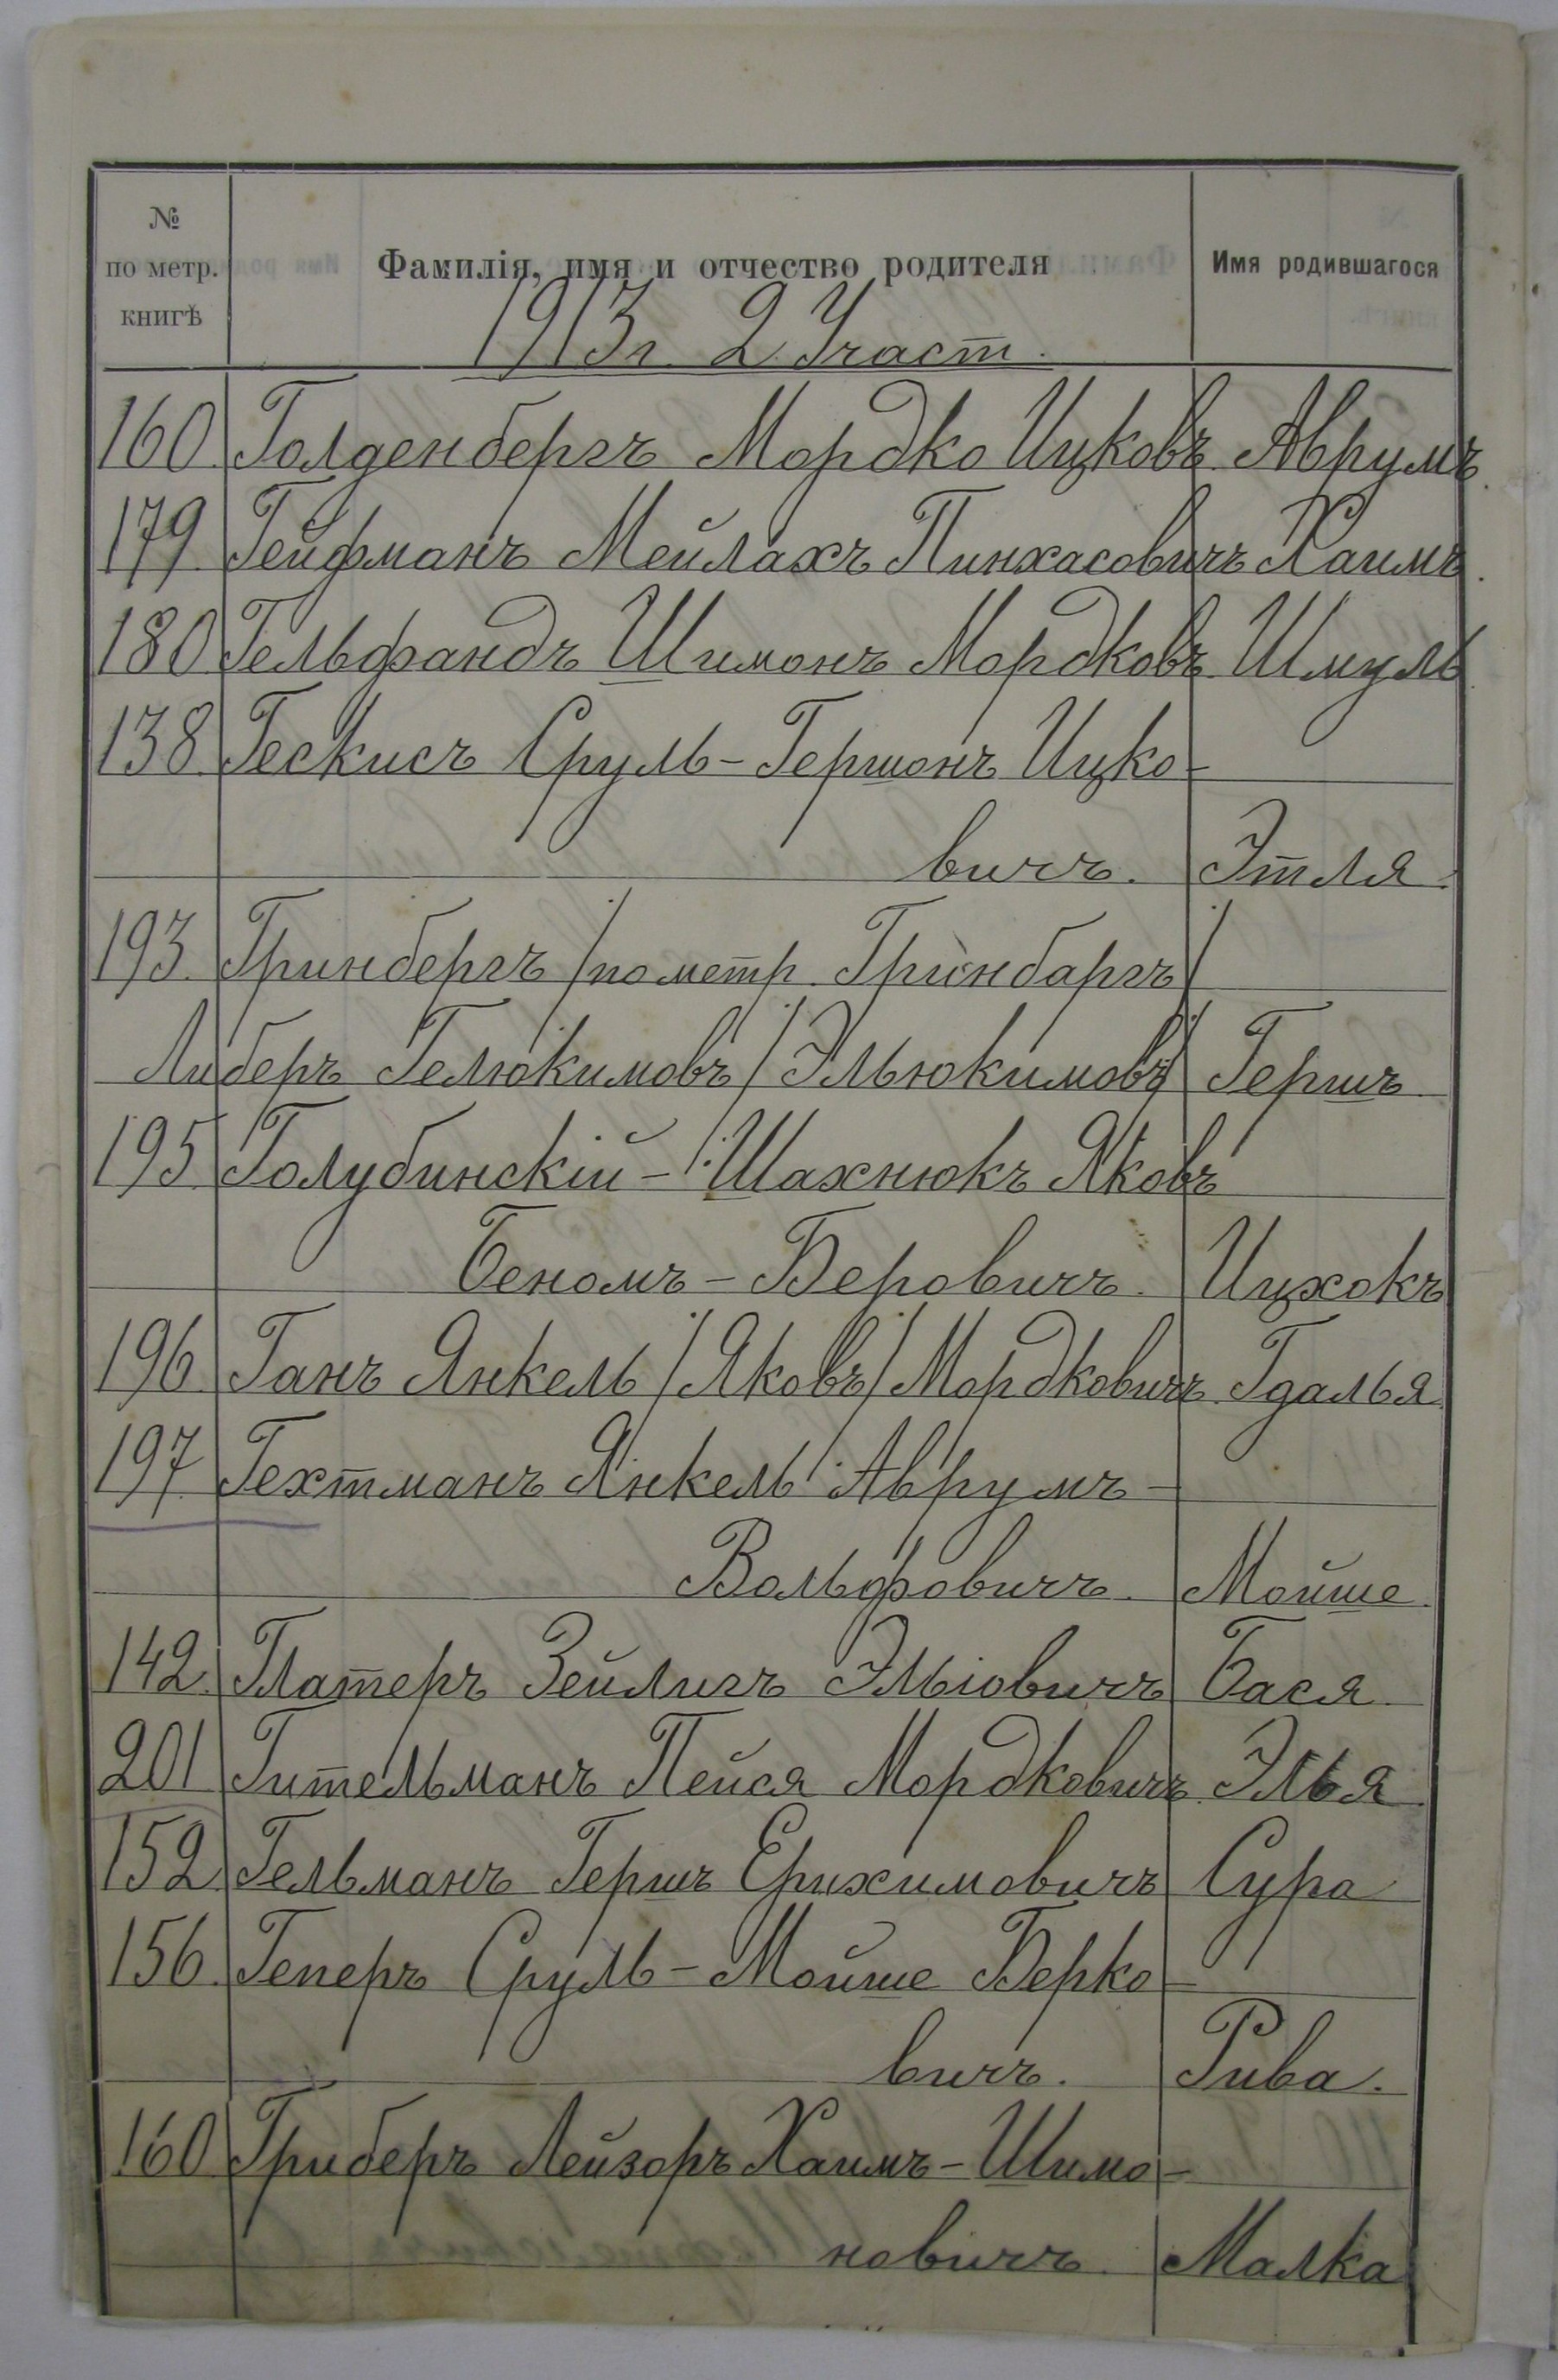 № по метр. книгѣ | Фамилія, имя и отчество родителя | Имя родившагося
1913 г. 2 Участ.
160. Голденбергъ Мордко Ицковъ. Аврумъ.
179. Гейфманъ Мейлахъ Пинхасовичъ Хаимъ.
180 Гельфандъ Шимонъ Мордковъ. Шмуль
138. Гескисъ Сруль-Гершонъ Ицко-
вичъ. Этля.
193. Гринбергъ /по метр. Гринбаргъ/
Либеръ Гелюкимовъ /Эльюкимовъ/ Гершъ
195. Голубинскій-Шахнюкъ Яковъ
Беномъ-Беровичъ. Ицхокъ
196. Ганъ Янкель /Яковъ/ Мордковичъ. Гдалья.
197. Гехтманъ Янкель Аврумъ-
Вольфовичъ. Мойше.
142. Глатеръ Зейлигъ Эльіовичъ Бася.
201 Гительманъ Пейся Мордковичъ. Элья.
152. Гельманъ Гершъ Ерихимовичъ Сура
156. Геперъ Сруль-Мойше Берко-
вичъ. Рива.
160 Гриберъ Лейзоръ Хаимъ-Шимо-
новичъ. Малка